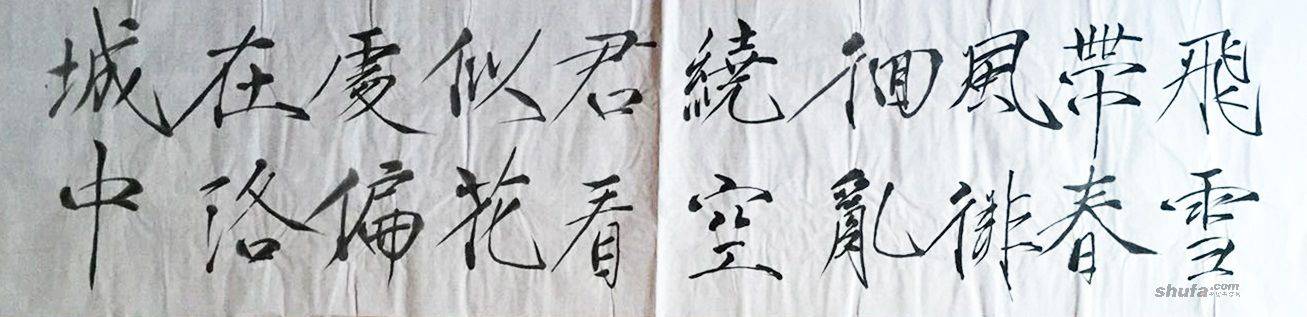 飛雪
帶春
風徘
徊亂
繞空
君看
似花
處偏
在洛
城中
shufa.com